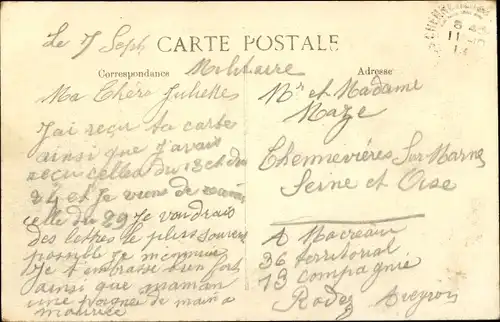 Le 7 Sept
CARTE POSTALE
Correspondance
Militaire
Adresse
Ma Chère Juliette
J'ai reçu ta carte
ainsi que J'avais
reçu celles du 13 et du
24 et Je viens de
celle du 29 Je voudrais
des lettres le plus souvent
possible Je
Je t embrasse bien fort
ainsi que maman
une poignee de main a
maurice
Mr et Madame
Maze
Chennevières Sur Marne
Seine et Oise
A Macreau
36 territorial
13 Compagnie
Rodez Aveyron